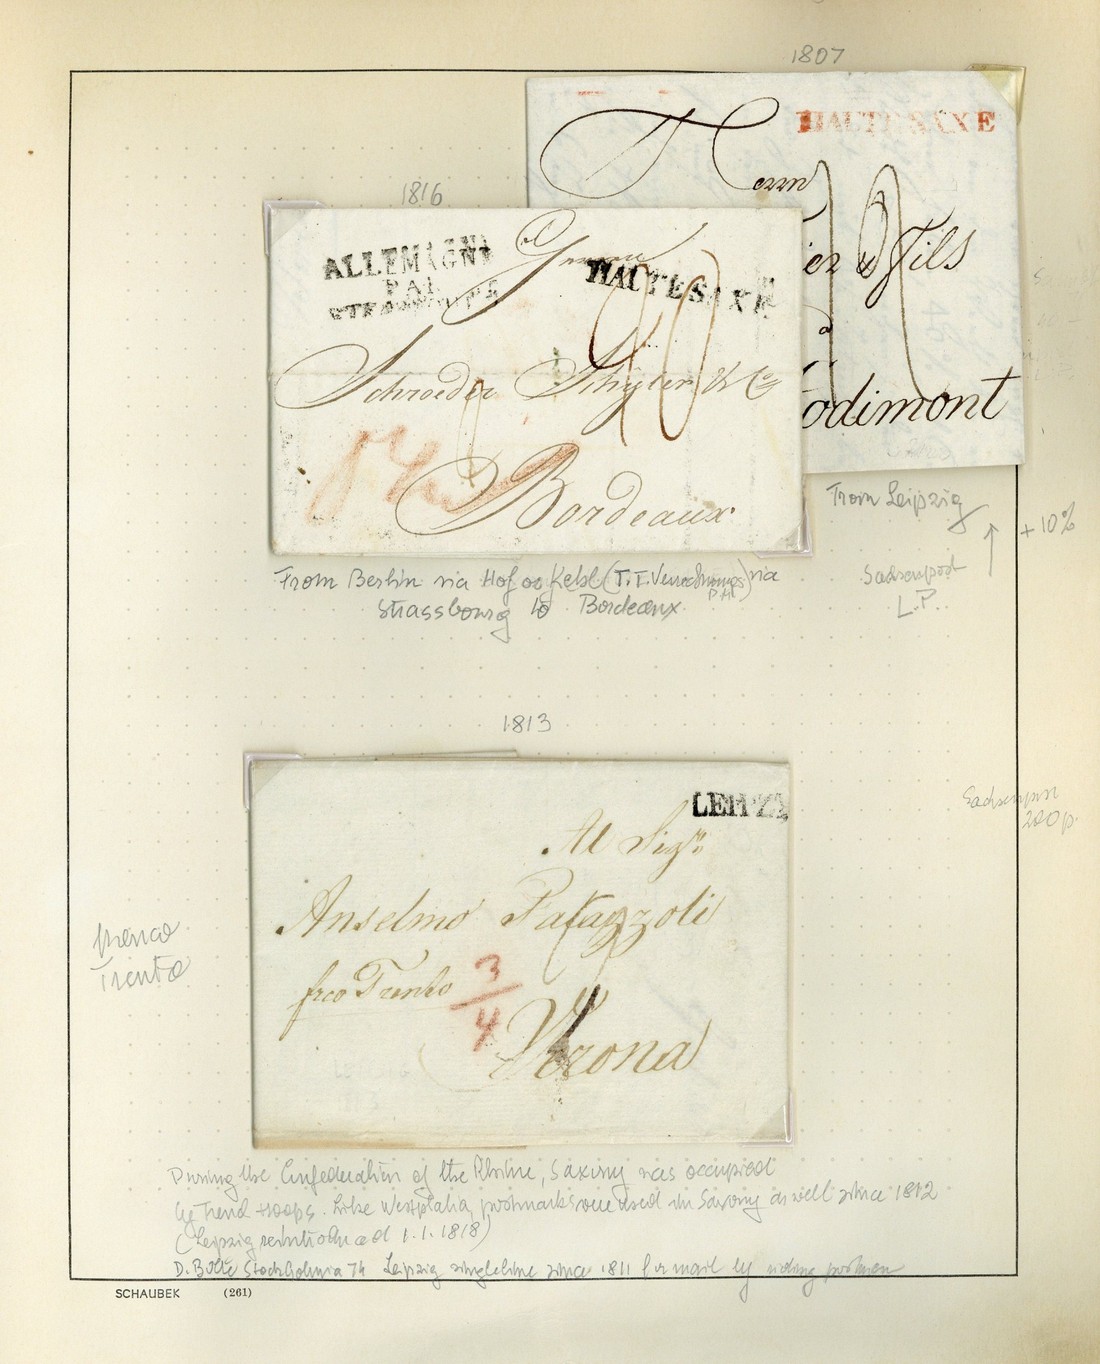 1807
HAUTE SAXE
Fils
odimont
1816
ALLEMAGNE
PAR
STRASBOURG
HAUTE SAXE
Schroeder Schyler & Co
Bordeaux
From Leipzig
+10%
Sachsenpost
L.P.
From Berlin via Hof or Kehl (T.T. ) via
Strassbourg to Bordeaux
1813
LEIPZIG
Al Sigr
Anselmo
fco Trento
3/4
Verona
Sachsen
200p.
franco
Trento
During the Confederation of the Rhine, Saxony was occupied
by troops. Like Westphalia postmarks were used in Saxony as well since 1812
(Leipzig 1.1.1818)
Stockholmia 74 Leipzig singleline since 1811 for mail by riding postmen
SCHAUBEK (261)